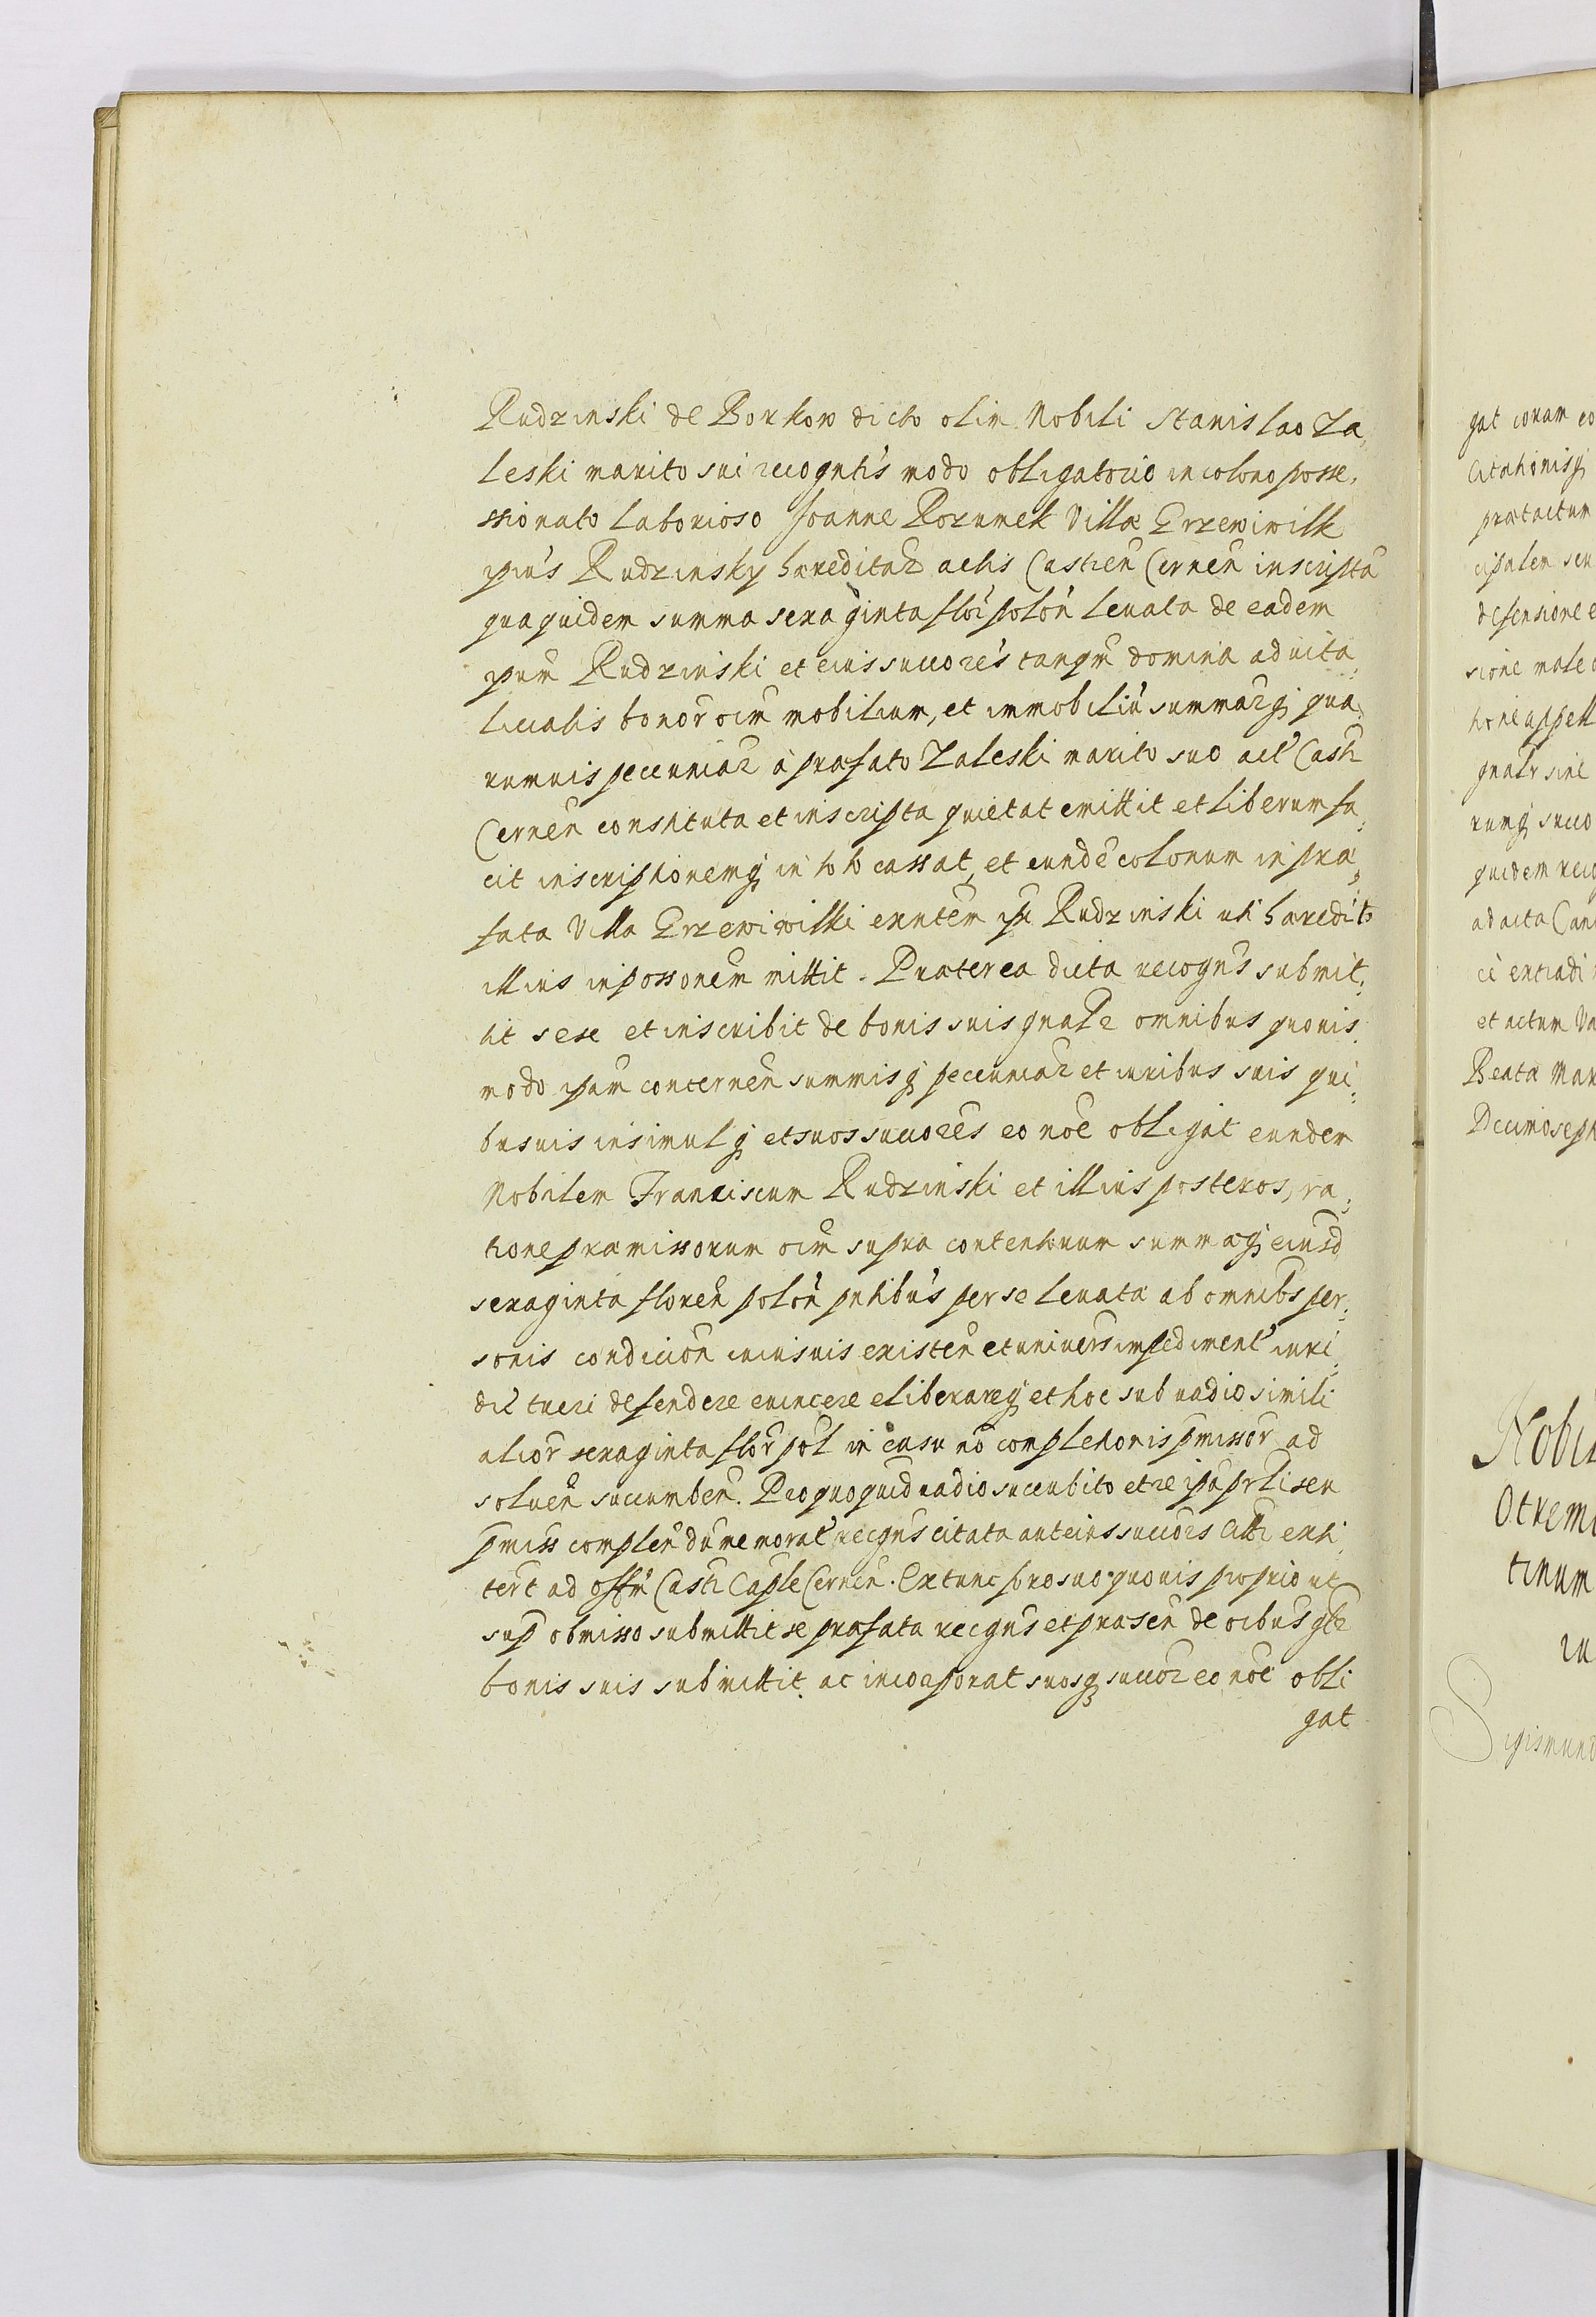 Rudzinski de Borkow dicto olim Nobili Stanislao Za,
leski marito sui recognti's modo obligatorio in colono posse,
ssionato laborioso Joanne Rozumek Villæ Grzewiwilk
ipiu's Rudzinsky hæreditar actis Castren Cernen inscripta
qua quidem summa sexaginta flor polon levata de eadem
ipum Rudzinski et eius succore's tanqm domina advita,
licialis bonor oim mobilium, et immobiliu summarq qua,
rumvis pecuniar à præfato Zaleski marito suo act Castr
Cernen constituta et inscripta quietat emittit et liberum fa,
cit inscriptionemq in toto cassat, et eunde colonum in præ,
fata Villa Grzewiwilki exntem ipi Rudzinski uti hæredi to
illius in possonem mittit. Præterea dicta recogns submit,
tit sese et inscribit de bonis suis gnale omnibus quovis
modo ipam concernen summisq pecuniar et iuribus suis qui,
busvis insimulq et suos succores eo noe obligat eundem
Nobilem Franciscum Rudzinski et illius posteros, ra,
tione præmissorum oim supra contentorum summæq eiusd
sexaginta floren polon pntibu's per se levatæ ab omnibs per,
sonis condicion cuiusvis existen et univers impediment iuri,
dic tueri defendere evincere eliberareq et hoc sub vadio simili
alior sexaginta flor pol in casu no completionis pmissor ad
solven succumben. Pro quo quid vadio succubito et re ipa prli seu
pmiss complen dum memorat recgns citata aut eius succors Citti exti
tert ad offm Castr Caple Cernen. Extunc foro suo quovis proprio ut
sup obmisso submittit se præfata recgns et præsen de oibus gle
bonis suis submittit ac incorporat suosq succor eo noe obli
gat